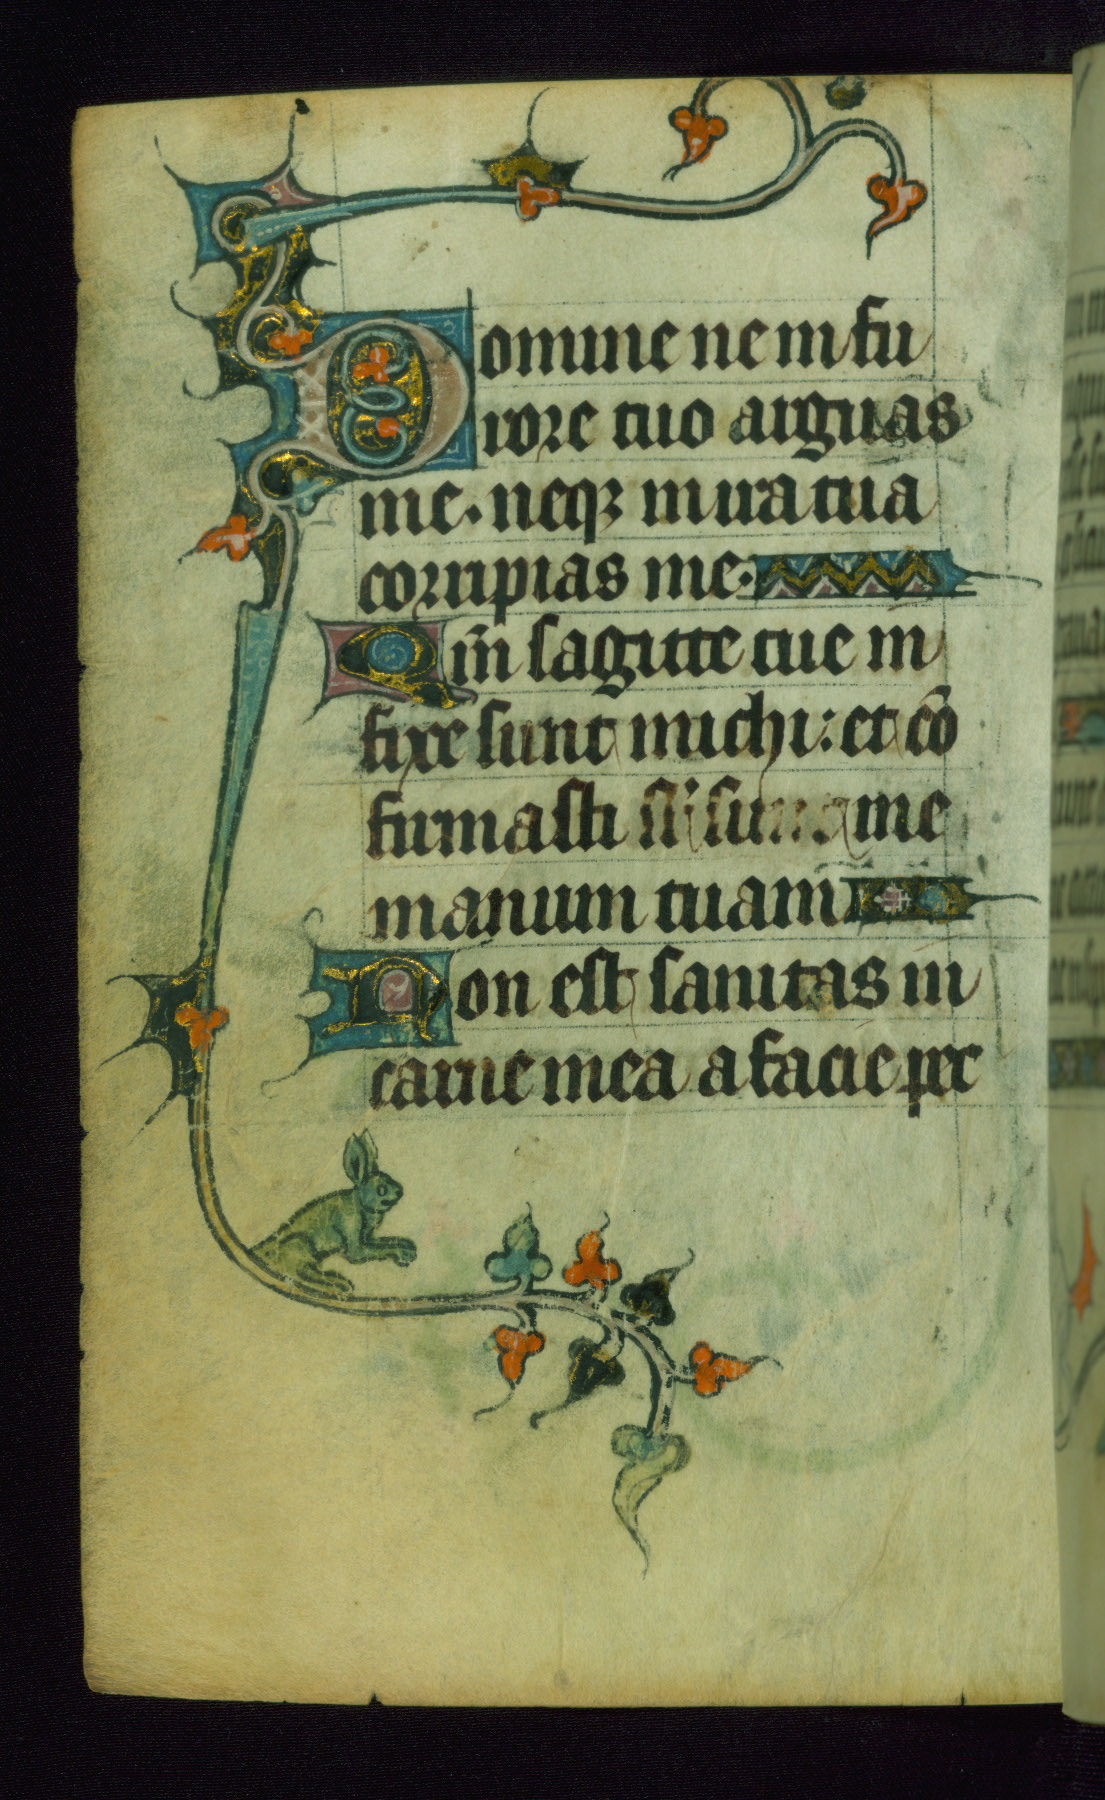 Domine ne in fu
rore tuo arguas
me. neqꝫ in ira tua
corripias me.
Qm̄ sagitte tue in
fixe sunt michi: et cō
firmasti me
manum tuam
Non est sanitas in
carne mea a facie pec